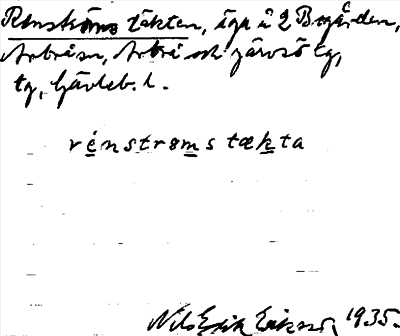 Renströms täkten, äga å 2 Bogården,
Arbråsn, Arbrå och Järvsö tg,
tg, Gävleb. l.
rénstrømstækta
Nils Erik Eriksson, 1935.